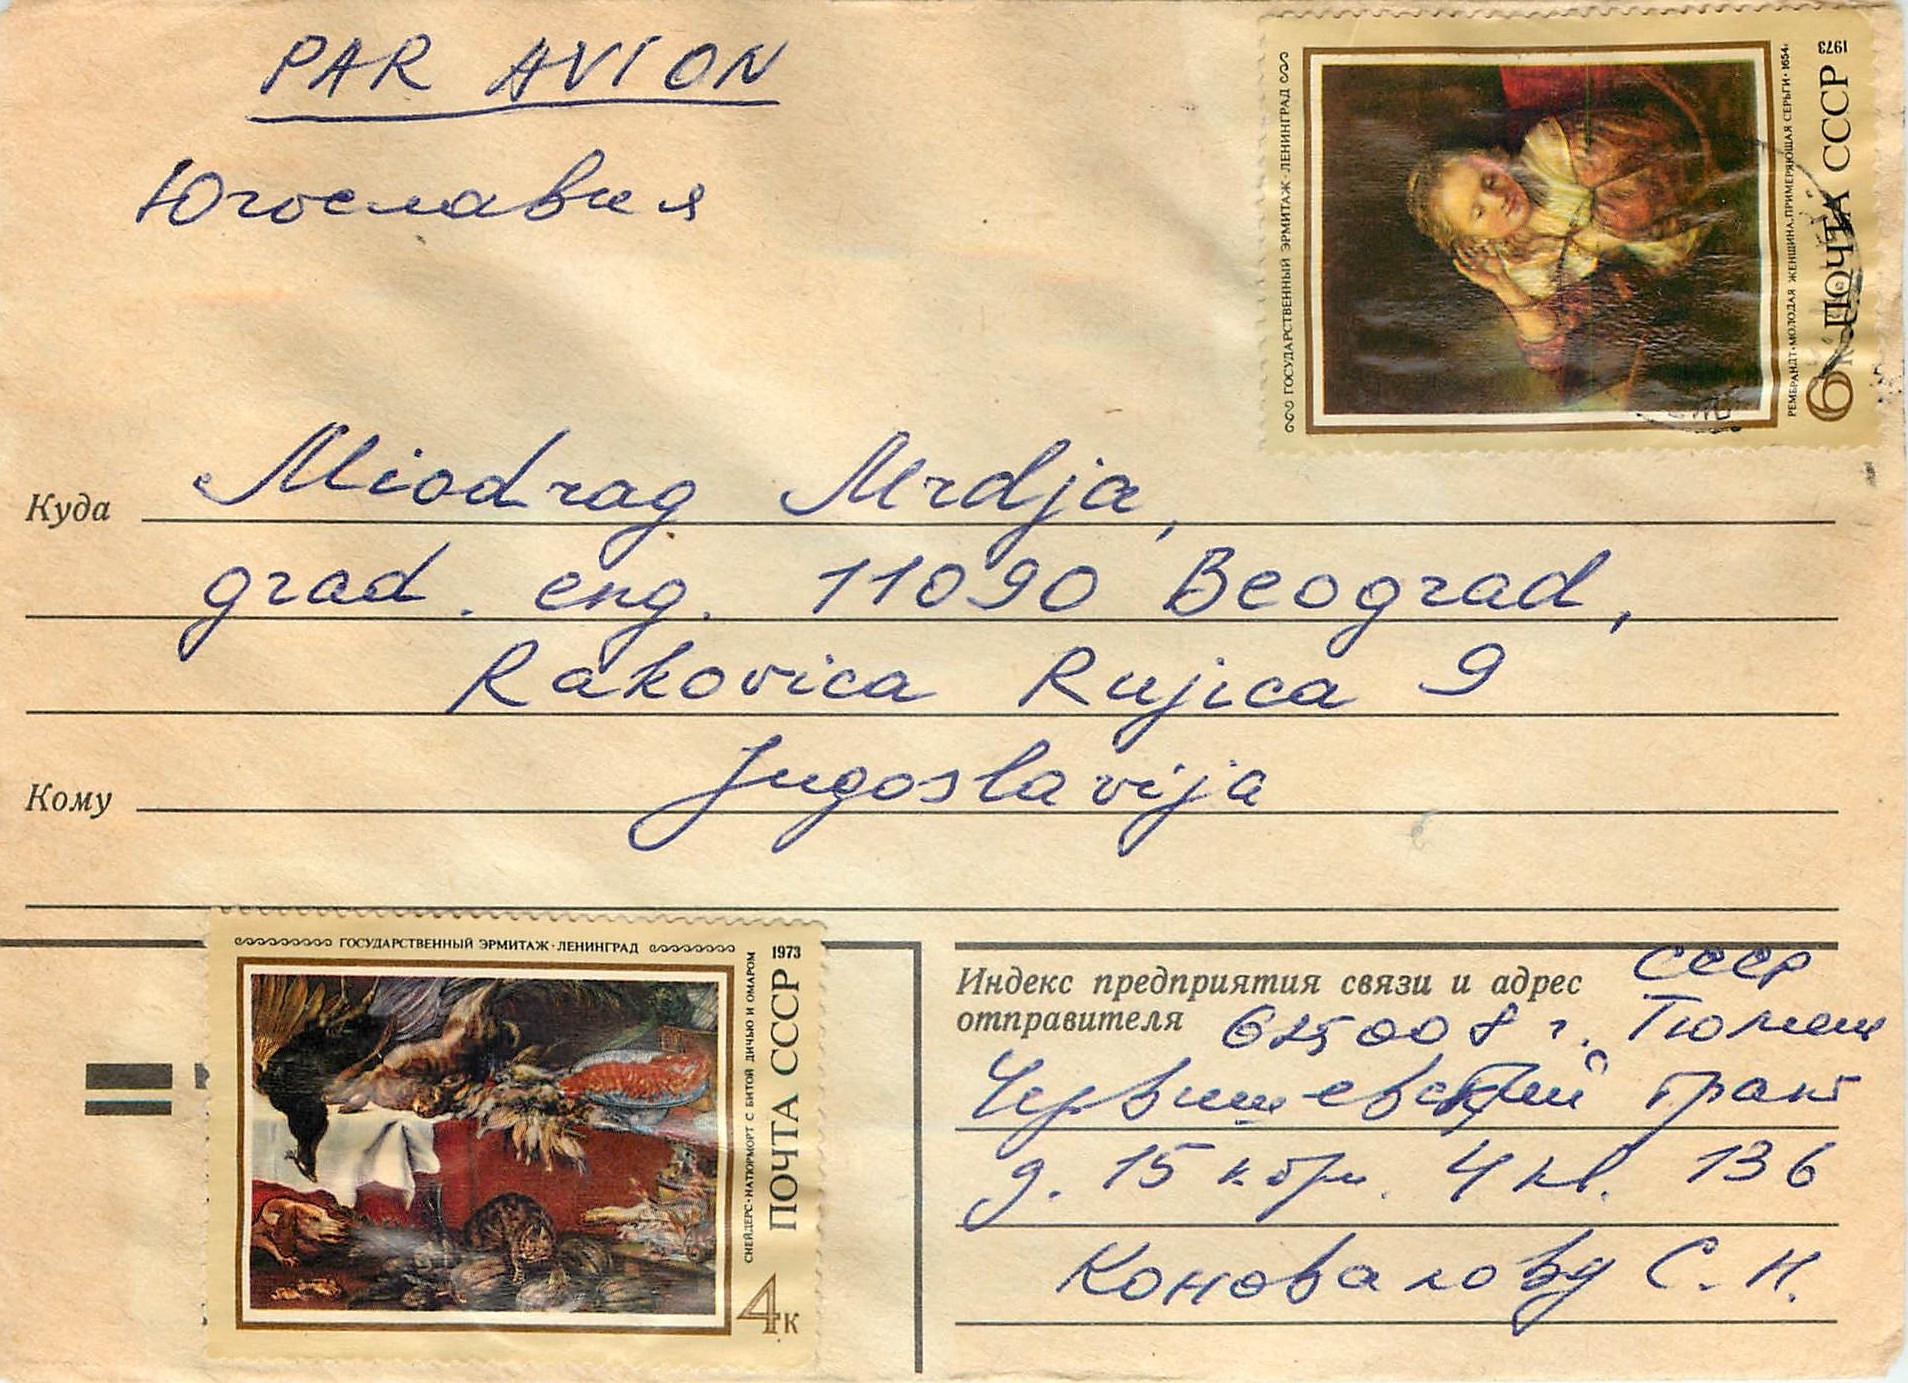 PAR AVION
Югославия
ГОСУДАРСТВЕННЫЙ ЭРМИТАЖ·ЛЕНИНГРАД
РЕМБРАНДТ·МОЛОДАЯ ЖЕНЩИНА, ПРИМЕРЯЮЩАЯ СЕРЬГИ·1654.
6к ПОЧТА СССР 1973
Куда Miodrag Mrdja,
grad. eng. 11090 Beograd,
Rakovica Rujica 9
Кому Jugoslavija
ГОСУДАРСТВЕННЫЙ ЭРМИТАЖ·ЛЕНИНГРАД
СНЕЙДЕРС·НАТЮРМОРТ С БИТОЙ ДИЧЬЮ И ОМАРОМ
ПОЧТА СССР 1973
4к
Индекс предприятия связи и адрес СССР
отправителя 625008 г. Тюмень
Червишевский тракт
д. 15 корп. 4 кв. 136
Коновалову С. Н.